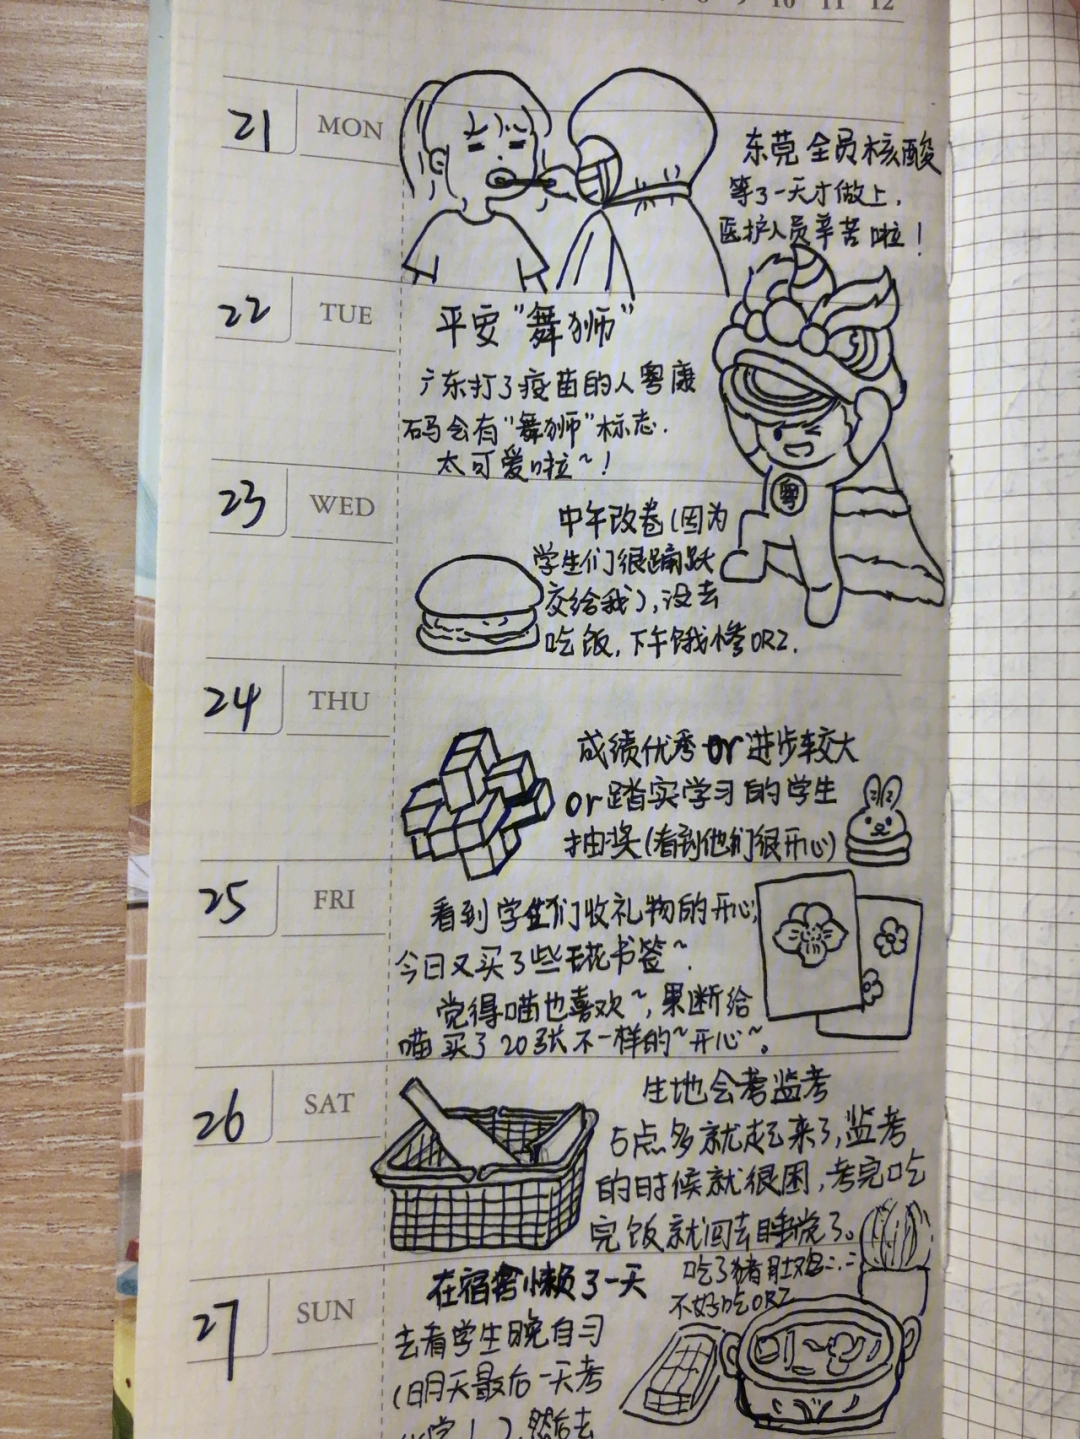 8 9 10 11 12
21 MON
东莞全员核酸
等了一天才做上,
医护人员辛苦啦!
22 TUE
平安"舞狮"
广东打了疫苗的人粤康
码会有"舞狮"标志.
太可爱啦~!
粤
23 WED
中午改卷(因为
学生们很踊跃
交给我),没去
吃饭,下午饿惨ORZ.
24 THU
成绩优秀or进步较大
or踏实学习的学生
抽奖(看到他们很开心)
25 FRI
看到学生们收礼物的开心,
今日又买了些花书签~.
觉得喵也喜欢~,果断给
喵买了20张不一样的~开心~。
26 SAT
生地会考监考
5点多就起来了,监考
的时候就很困,考完吃
完饭就回去睡觉了。
吃了猪肚鸡
不好吃ORZ
27 SUN
在宿舍懒了一天
去看学生晚自习
(明天最后一天考
学!),然后去